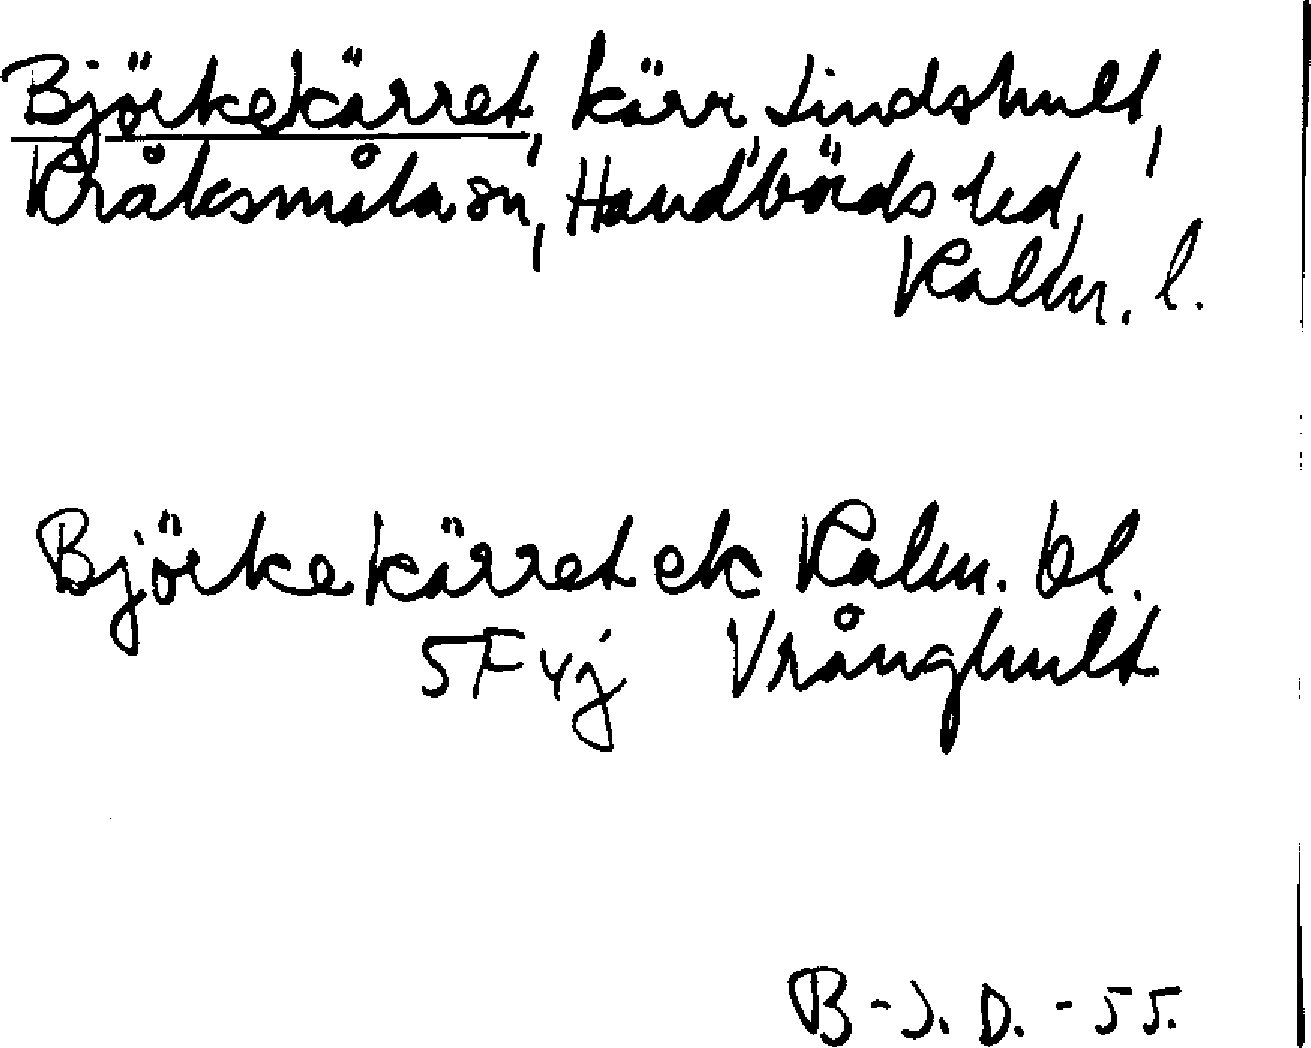 Björkekärret, kärr Lindshult,
Kråksmåla sn, Handbörds hd,
Kalm. l.
Björkekärret ek Kalm. bl.
5F yj Vrånghult
B-J. D. - 55.